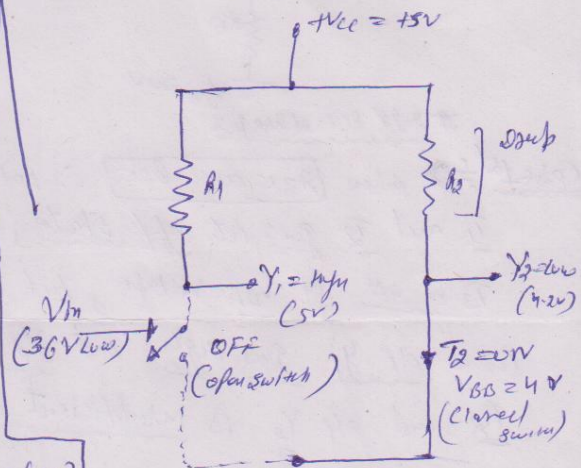 +Vcc = +5V
R1
R2
Drop
Y1 = High
(5V)
Y2 = Low
(4.2V)
Vin
(3.6V Low)
OFF
(open switch)
T2 = ON
VBB = 4V
(Closed
switch)